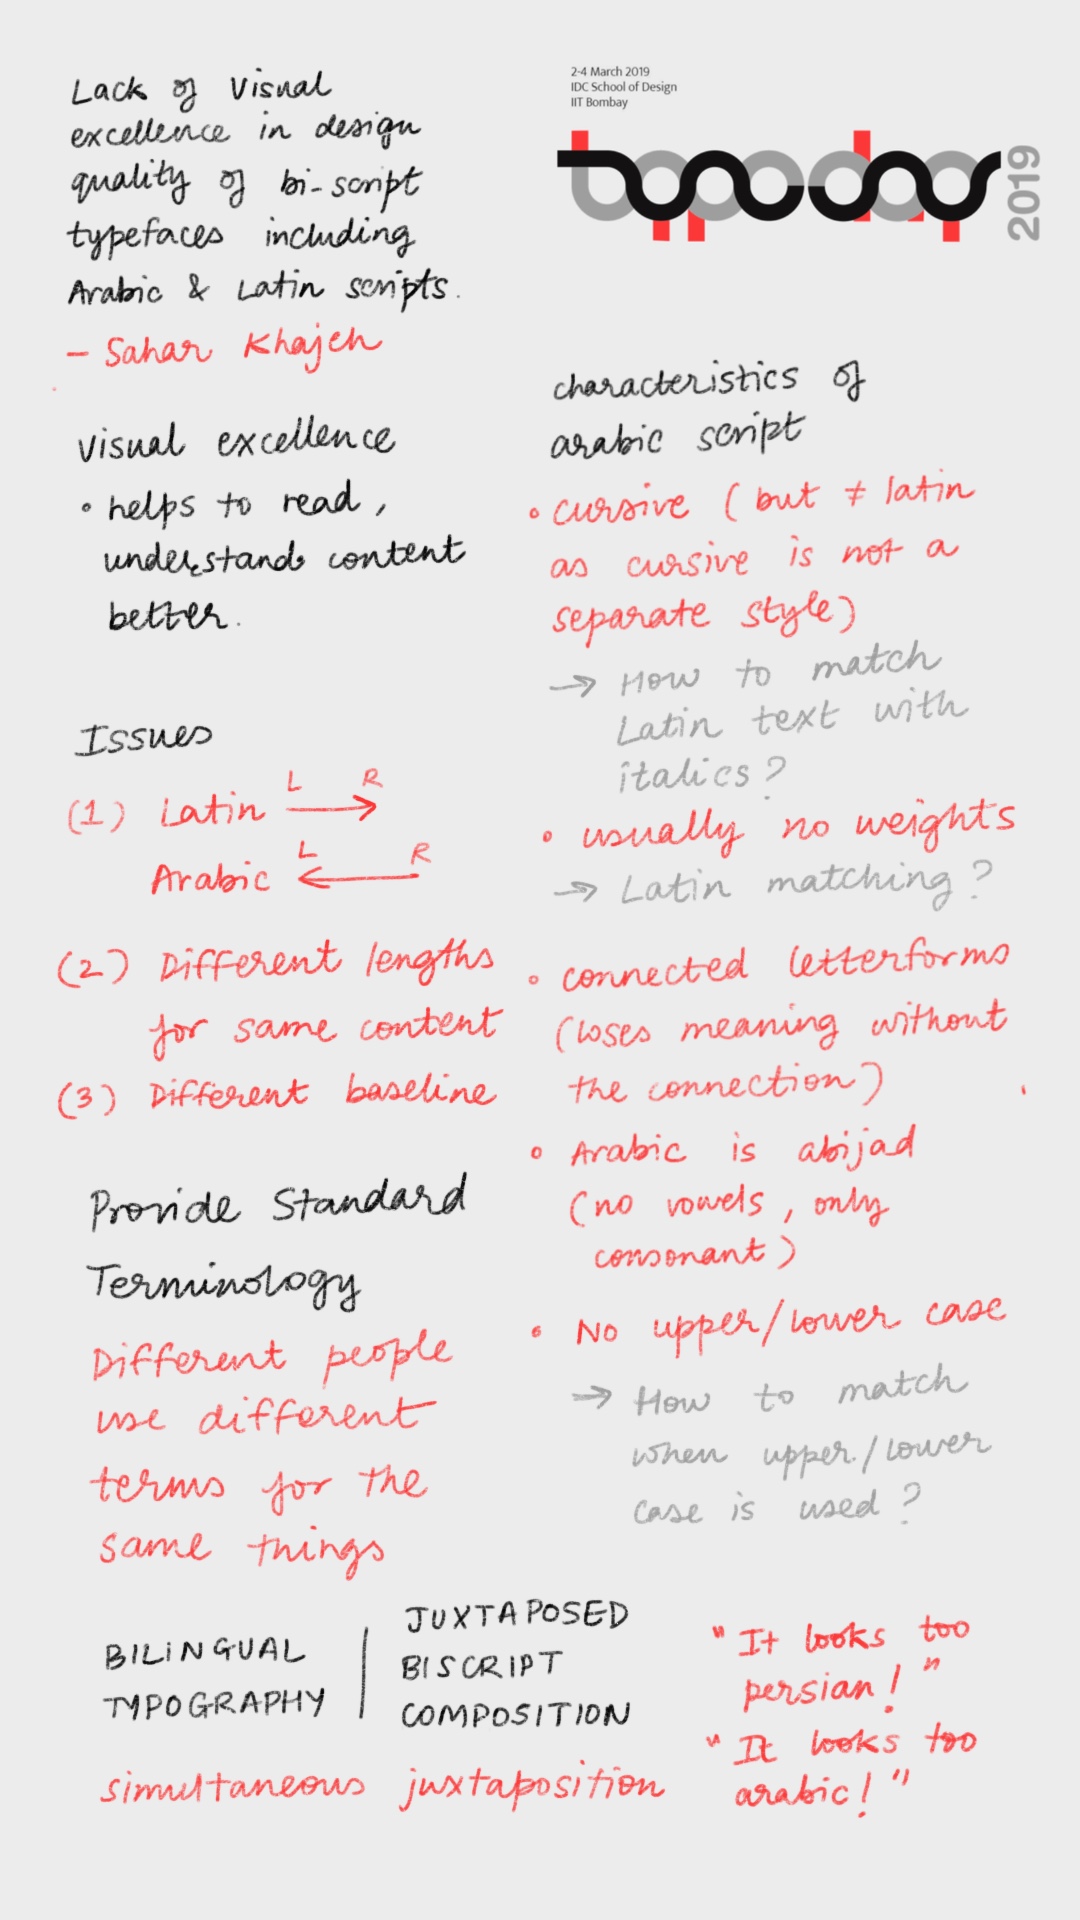 Lack of Visual
excellence in design
quality of bi-script
typefaces including
Arabic & Latin scripts.
- Sahar Khajeh
visual excellence
• helps to read,
understand content
better.
Issues
(1) Latin L → R
Arabic L ← R
(2) Different lengths
for same content
(3) Different baseline
Provide Standard
Terminology
Different people
use different
terms for the
same things
2-4 March 2019
IDC School of Design
IIT Bombay
typoday 2019
characteristics of
arabic script
• cursive (but ≠ latin
as cursive is not a
separate style)
→ How to match
Latin text with
italics?
• usually no weights
→ Latin matching?
• connected letterforms
(loses meaning without
the connection)
• Arabic is abijad
(no vowels, only
consonant)
• No upper/lower case
→ How to match
when upper/lower
case is used?
BILINGUAL
TYPOGRAPHY
JUXTAPOSED
BISCRIPT
COMPOSITION
simultaneous juxtaposition
"It looks too
persian!"
"It looks too
arabic!"